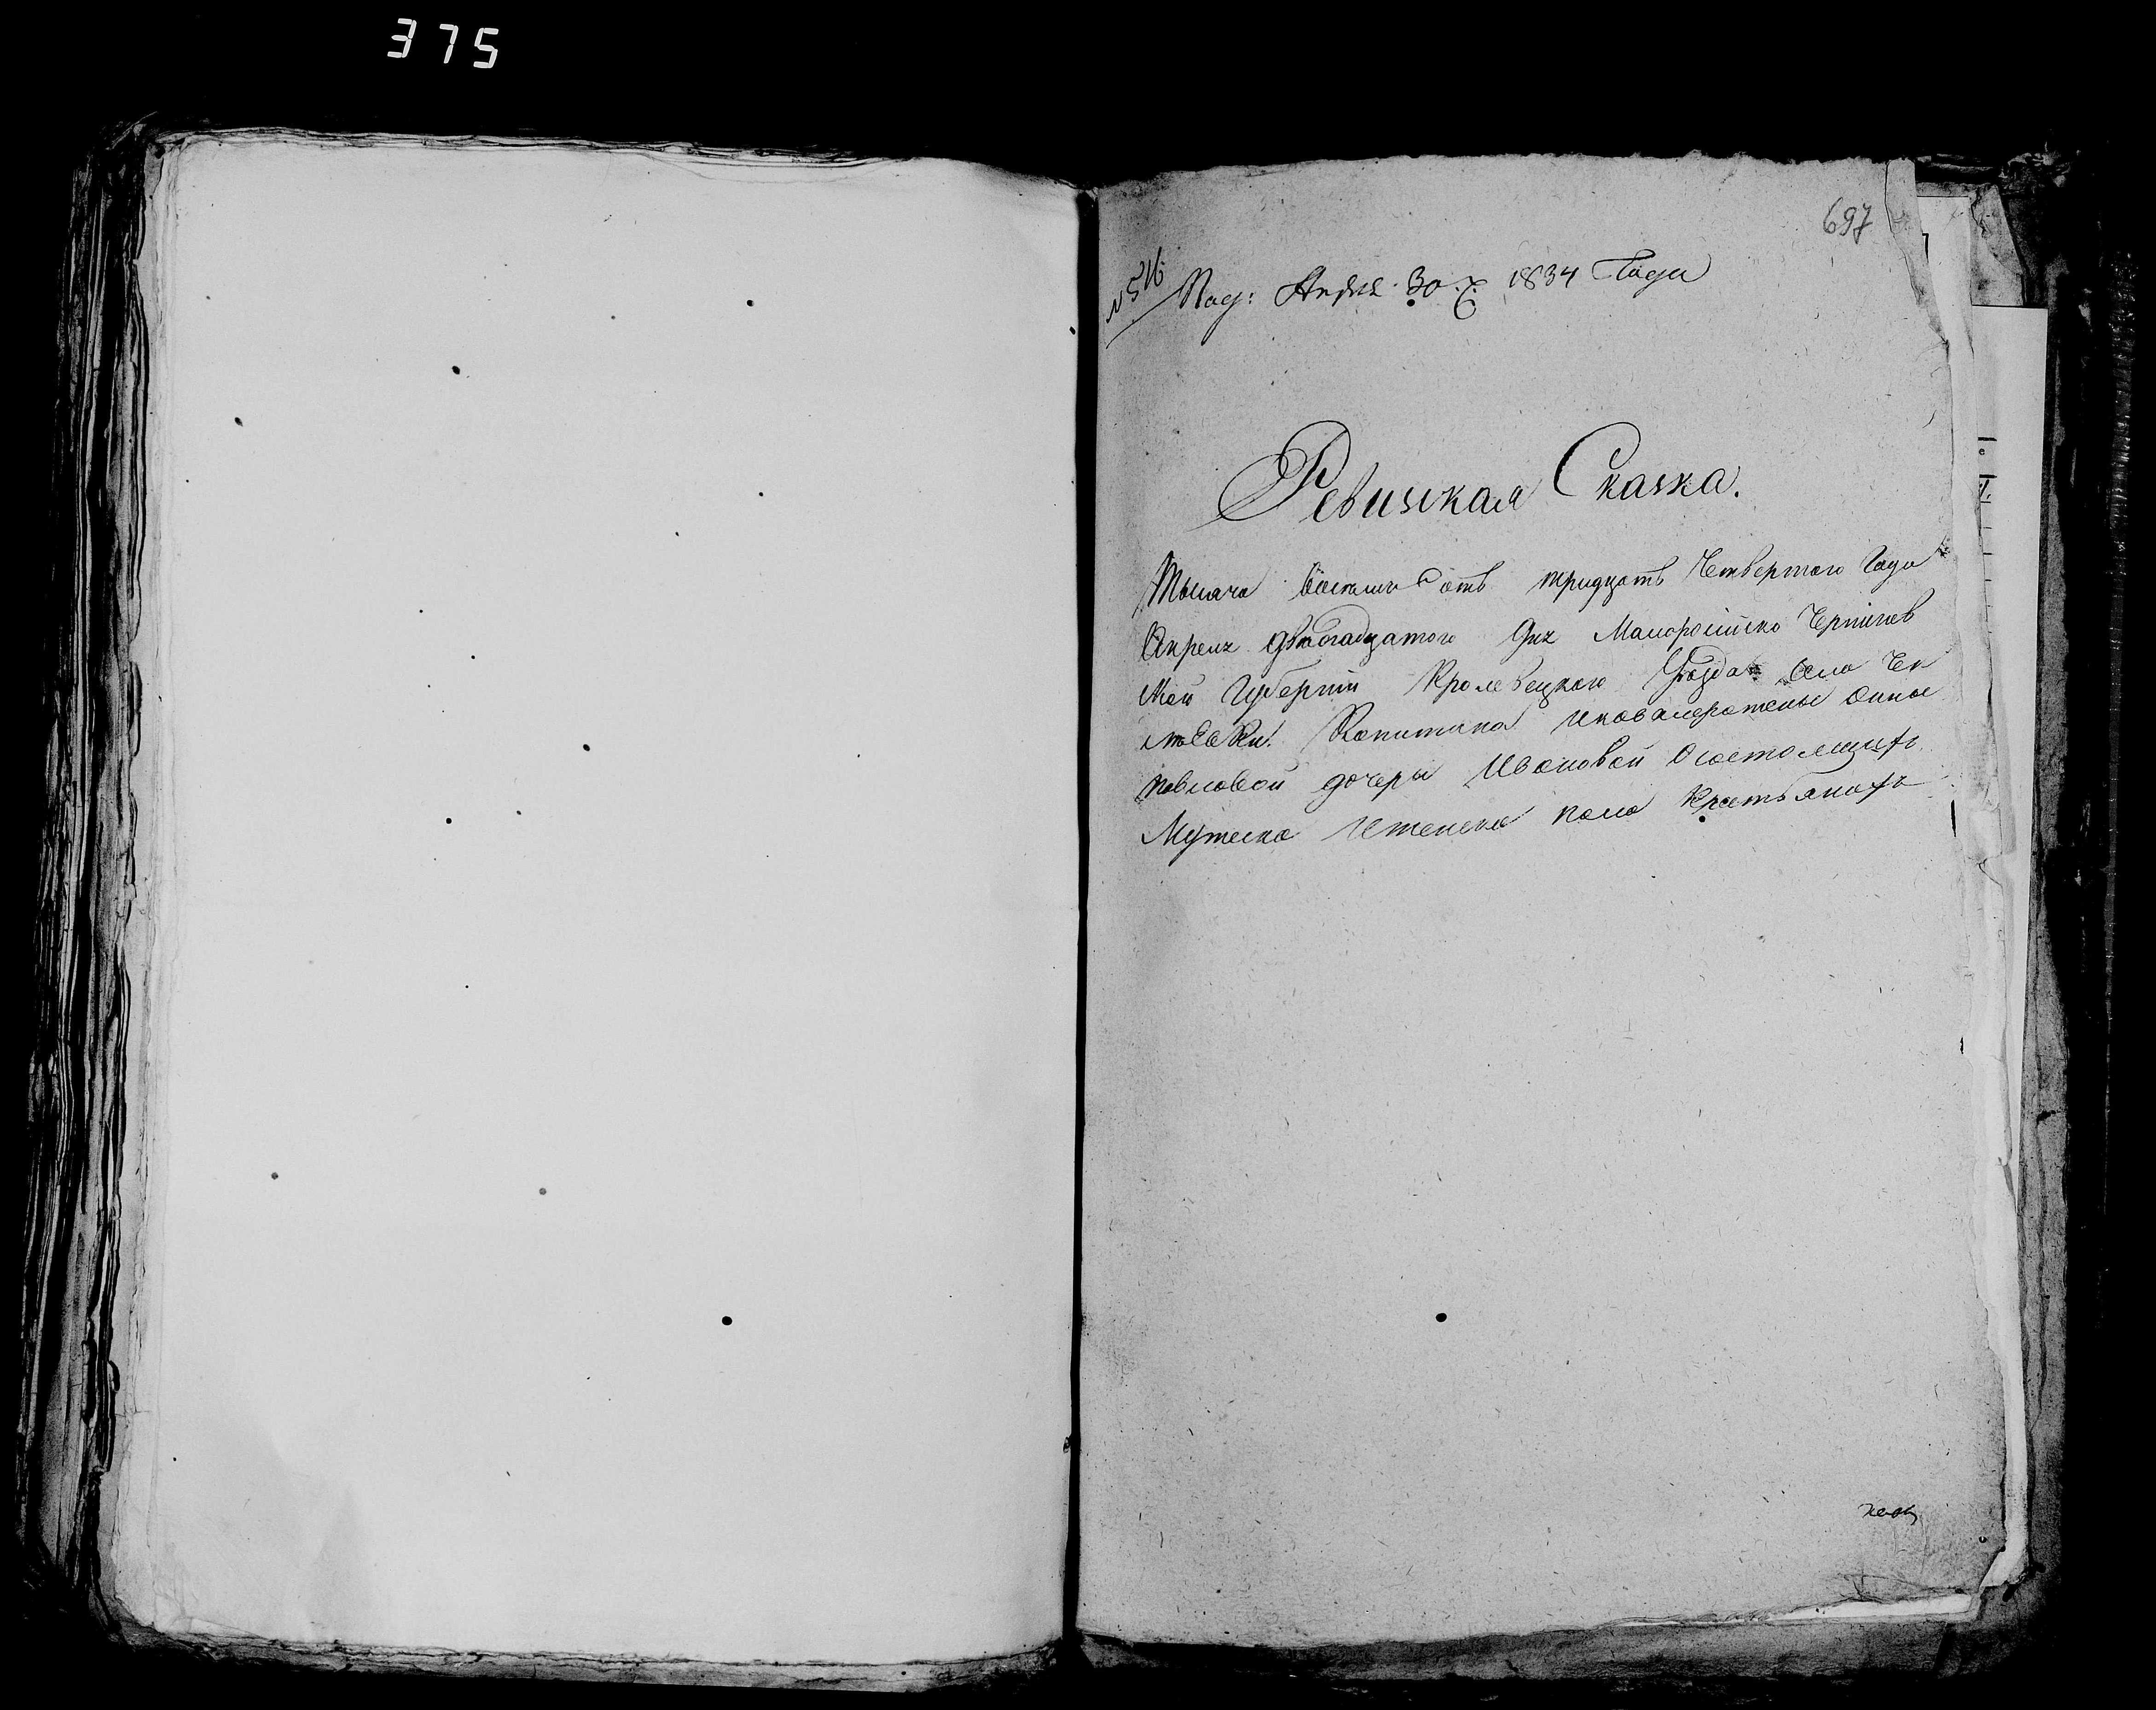 375
697
№ 516
Под: Апреля 30. 1834 Года
Ревизская Сказка.
Тысяча восемь сотъ тридцать Четвертого Года
Апреля двадцатого дня Малоросийско Чернигов
ской Губернии Кролевецкого Уезда села
Капитана Анны
Павловой дочери Ивановой о состоящихъ
Мужеска и женска пола крестьянахъ